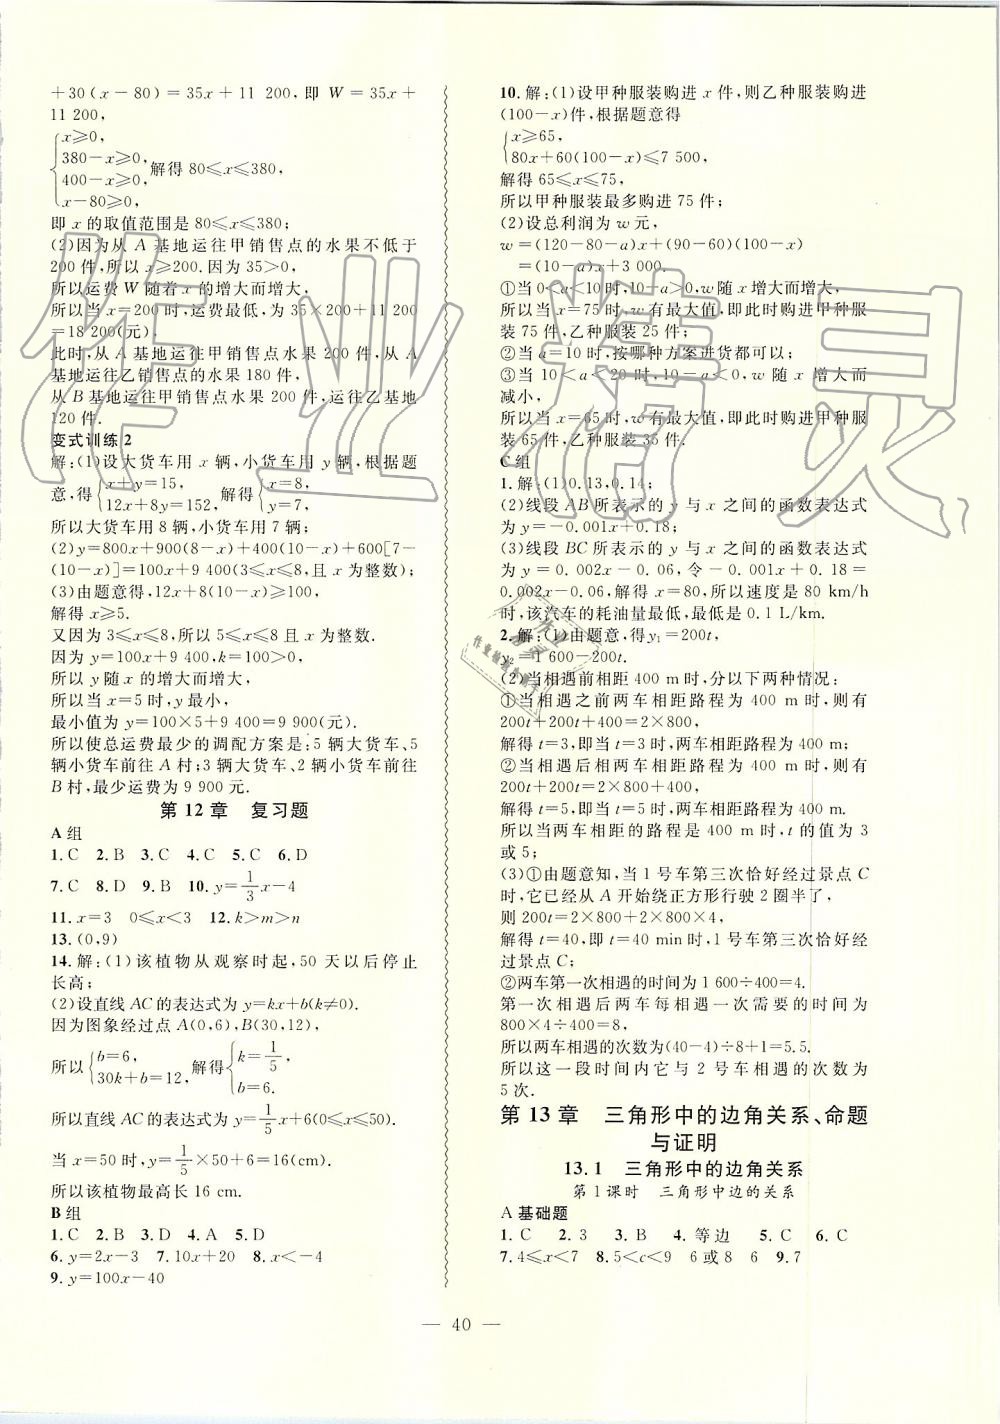 +30(x-80)=35x+11 200,即 W=35x+
11 200,
x≥0,
380-x≥0,
400-x≥0,
x-80≥0,
解得 80≤x≤380,
即 x 的取值范围是 80≤x≤380;
(2)因为从 A 基地运往甲销售点的水果不低于
200 件,所以 x≥200.因为 35>0,
所以运费 W 随着 x 的增大而增大,
所以当 x=200 时,运费最低,为 35×200+11 200
=18 200(元).
此时,从 A 基地运往甲销售点水果 200 件,从 A
基地运往乙销售点的水果 180 件,
从 B 基地运往甲销售点水果 200 件,运往乙基地
120 件.
变式训练 2
解:(1)设大货车用 x 辆,小货车用 y 辆,根据题
意,得{x+y=15, 12x+8y=152, 解得{x=8, y=7.
所以大货车用 8 辆,小货车用 7 辆;
(2)y=800x+900(8-x)+400(10-x)+600[7-
(10-x)]=100x+9 400(3≤x≤8,且 x 为整数);
(3)由题意得,12x+8(10-x)≥100,
解得 x≥5.
又因为 3≤x≤8,所以 5≤x≤8 且 x 为整数.
因为 y=100x+9 400,k=100>0,
所以 y 随 x 的增大而增大,
所以当 x=5 时,y 最小,
最小值为 y=100×5+9 400=9 900(元).
所以使总运费最少的调配方案是:5 辆大货车、5
辆小货车前往 A 村;3 辆大货车、2 辆小货车前往
B 村,最少运费为 9 900 元.
第 12 章 复习题
A 组
1.C 2.B 3.C 4.C 5.C 6.D
7.C 8.D 9.B 10.y=1/3x-4
11.x=3 0≤x<3 12.k>m>n
13.(0,9)
14.解:(1)该植物从观察时起,50 天以后停止
长高;
(2)设直线 AC 的表达式为 y=kx+b(k≠0).
因为图象经过点 A(0,6),B(30,12),
所以{b=6, 30k+b=12, 解得{k=1/5, b=6.
所以直线 AC 的表达式为 y=1/5x+6(0≤x≤50).
当 x=50 时,y=1/5×50+6=16(cm).
所以该植物最高长 16 cm.
B 组
1.C 2.C 3.D 4.D 5.C
6.y=2x-3 7.10x+20 8.x<-4
9.y=100x-40
10.解:(1)设甲种服装购进 x 件,则乙种服装购进
(100-x)件,根据题意得
x≥65,
80x+60(100-x)≤7 500,
解得 65≤x≤75,
所以甲种服装最多购进 75 件;
(2)设总利润为 w 元,
w=(120-80-a)x+(90-60)(100-x)
=(10-a)x+3 000.
①当 0<a<10 时,10-a>0,w 随 x 增大而增大,
所以当 x=75 时,w 有最大值,即此时购进甲种服
装 75 件,乙种服装 25 件;
②当 a=10 时,按哪种方案进货都可以;
③当 10<a<20 时,10-a<0,w 随 x 增大而
减小,
所以当 x=65 时,w 有最大值,即此时购进甲种服
装 65 件,乙种服装 35 件.
C 组
1.解:(1)0.13,0.14;
(2)线段 AB 所表示的 y 与 x 之间的函数表达式
为 y=-0.001x+0.18;
(3)线段 BC 所表示的 y 与 x 之间的函数表达式
为 y=0.002x-0.06,令-0.001x+0.18=
0.002x-0.06,解得 x=80,所以速度是 80 km/h
时,该汽车的耗油量最低,最低是 0.1 L/km.
2.解:(1)由题意,得 y₁=200t,
y₂=1 600-200t.
(2)当相遇前相距 400 m 时,分以下两种情况:
①当相遇之前两车相距路程为 400 m 时,则有
200t+200t+400=2×800,
解得 t=3,即当 t=3 时,两车相距路程为 400 m;
②当相遇后相距两车相距路程为 400 m,则有
200t+200t=2×800+400,
解得 t=5,即当 t=5 时,两车相距路程为 400 m.
所以当两车相距的路程是 400 m 时,t 的值为 3
或 5;
(3)①由题意知,当 1 号车第三次恰好经过景点 C
时,它已经从 A 开始绕正方形行驶 2 圈半了,
则 200t=2×800+2×800×4,
解得 t=40,即 t=40 min 时,1 号车第三次恰好经
过景点 C;
②两车第一次相遇的时间为 1 600÷400=4.
第一次相遇后两车每相遇一次需要的时间为
800×4÷400=8,
所以两车相遇的次数为(40-4)÷8+1=5.5.
所以这一段时间内它与 2 号车相遇的次数为
5 次.
第 13 章 三角形中的边角关系、命题
与证明
13.1 三角形中的边角关系
第 1 课时 三角形中边的关系
A 基础题
1.C 2.3 3.B 4.等边 5.C 6.C
7.4≤x<7 8.5<c<9 6或8 6 9.7
— 40 —
作业精灵